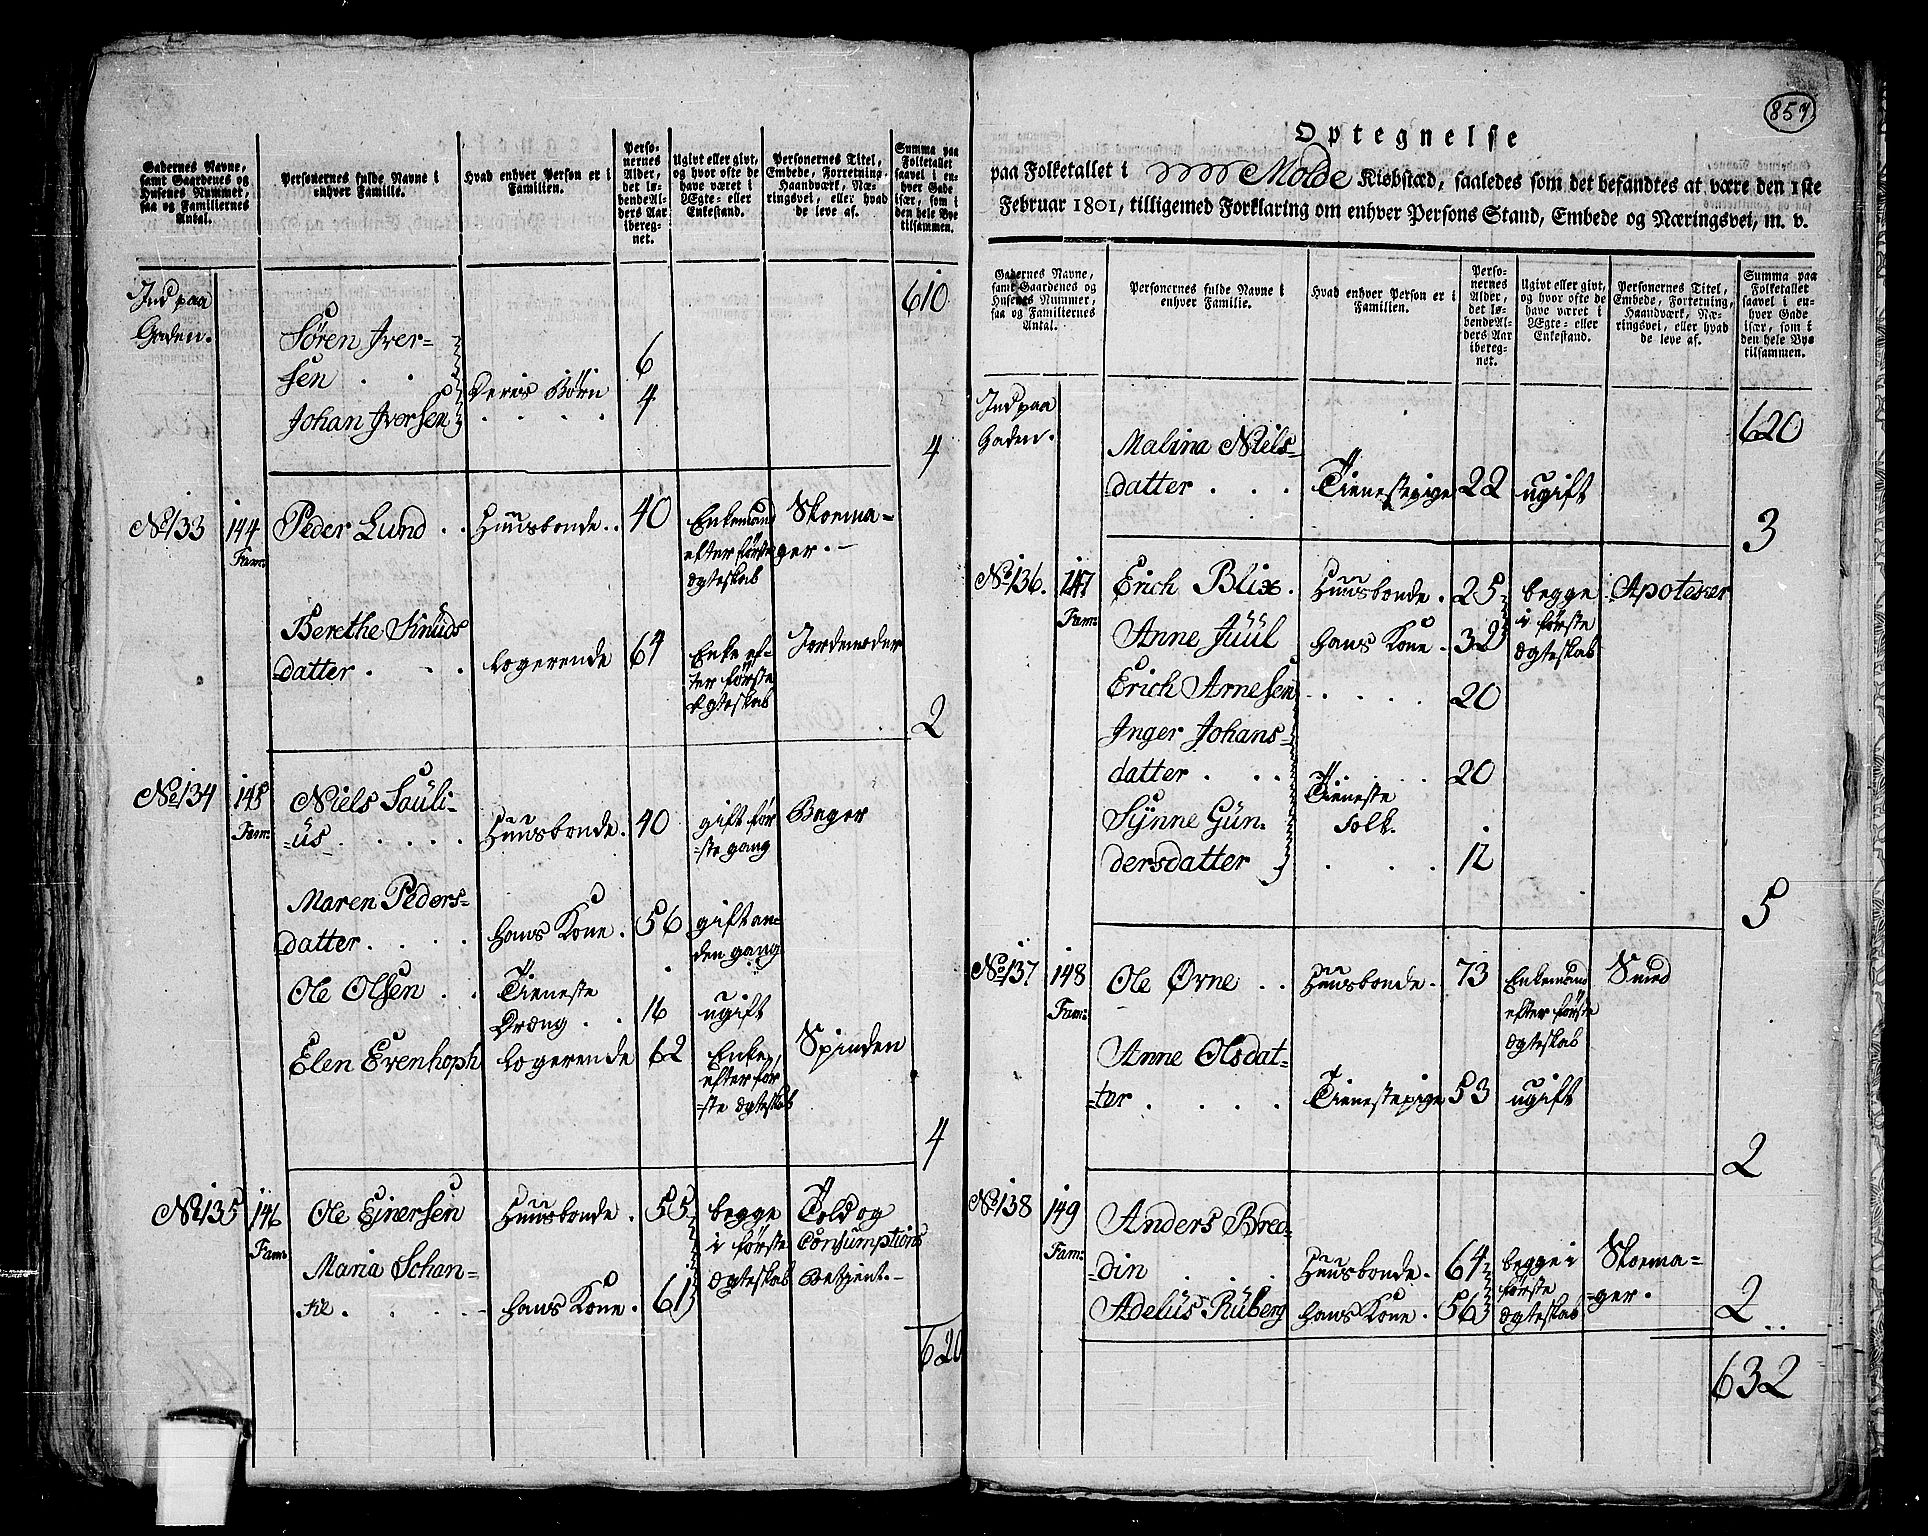 Gadernes Navne,
samt Gaardenes og
Husenes Nummer,
saa og Familiernes
Antal.
Personernes fulde Navne i
enhver Familie.
Hvad enhver Person er i
Familien.
Perso-
nernes
Alder,
det lø-
bende Al-
ders Aar
iberegnet.
Ugivt eller givt,
og hvor ofte de
have været i
Ægte- eller
Enkestand.
Personernes Titel,
Embede, Forretning,
Haandværk, Næ-
ringsvei, eller hvad
de leve af.
Summa paa
Folketallet
saavel i en-
hver Gade
især, som i
den hele Bye
tilsammen.
Ind paa
Gaden.
610
Søren Iver-
sen . . 6
Johan Iversen Deres Børn 4
4
No 133 144 Fam: Peder Lund . . Huusbonde . . 40 Enkemand Skoema-
efter første ger.
ægteskab
Berethe Knuds
datter . . . Logerende 64 Enke ef- Jordemoder
ter første
Ægteskab
2
No 134 148 Fam: Niels Sauli-
us . . . . . Huusbonde . 40 gift før Bager
-ste gang
Maren Peders-
datter . . . . hans Kone . 56 gift an-
den gang
Ole Olsen . . Tieneste
Dræng . . 16 ugift
Elen Evenhoph Logerende 62 Enke, Spinden
efter før
-ste ægteskab
4
No 135 146 Fam: Ole Einersen Huusbonde . 55 begge Told og
i første Consumptions
Maria Schan-
ke . . . . hans Kone . 61 ægteskab Betient.
620
857
Optegnelse
paa Folketallet i Molde Kiøbstæd, saaledes som det befandtes at være den 1ste
Februar 1801, tilligemed Forklaring om enhver Persons Stand, Embede og Næringsvei, m. v.
Gadernes Navne,
samt Gaardenes og
Husenes Nummer,
saa og Familiernes
Antal.
Personernes fulde Navne i
enhver Familie.
Hvad enhver Person er i
Familien.
Perso-
nernes
Alder,
det lø-
bende Al-
ders Aar
iberegnet.
Ugivt eller givt,
og hvor ofte de
have været i
Ægte- eller
Enkestand.
Personernes Titel,
Embede, Forretning,
Haandværk, Næ-
ringsvei, eller hvad
de leve af.
Summa paa
Folketallet
saavel i en-
hver Gade
især, som i
den hele Bye
tilsammen.
Ind paa
Gaden.
620
Malina Niels-
datter . . . Tienestepige 22 ugift
3
No 136. 147 Fam: Erich Blix . Huusbonde . 25 begge Apoteker
Anne Jüül hans Kone . 32 i første
ægteskab
Erich Arnesen . . . . 20
Inger Johans-
datter . . . . . . 20
Tieneste
Synne Gün- Folk.
dersdatter . . . 12
5
No 137 148 Fam: Ole Ørne . . Huusbonde . 73 Enkemand Smed
efter første
ægteskab
Anne Olsdat-
-ter . . . . Tienestepige 53 ugift
2
No 138 149 Fam: Anders Bred-
-din . . . Huusbonde . 64 begge i Skoema-
første -ger.
Adelüs Rüberg hans Kone . 56 ægteskab
2
632